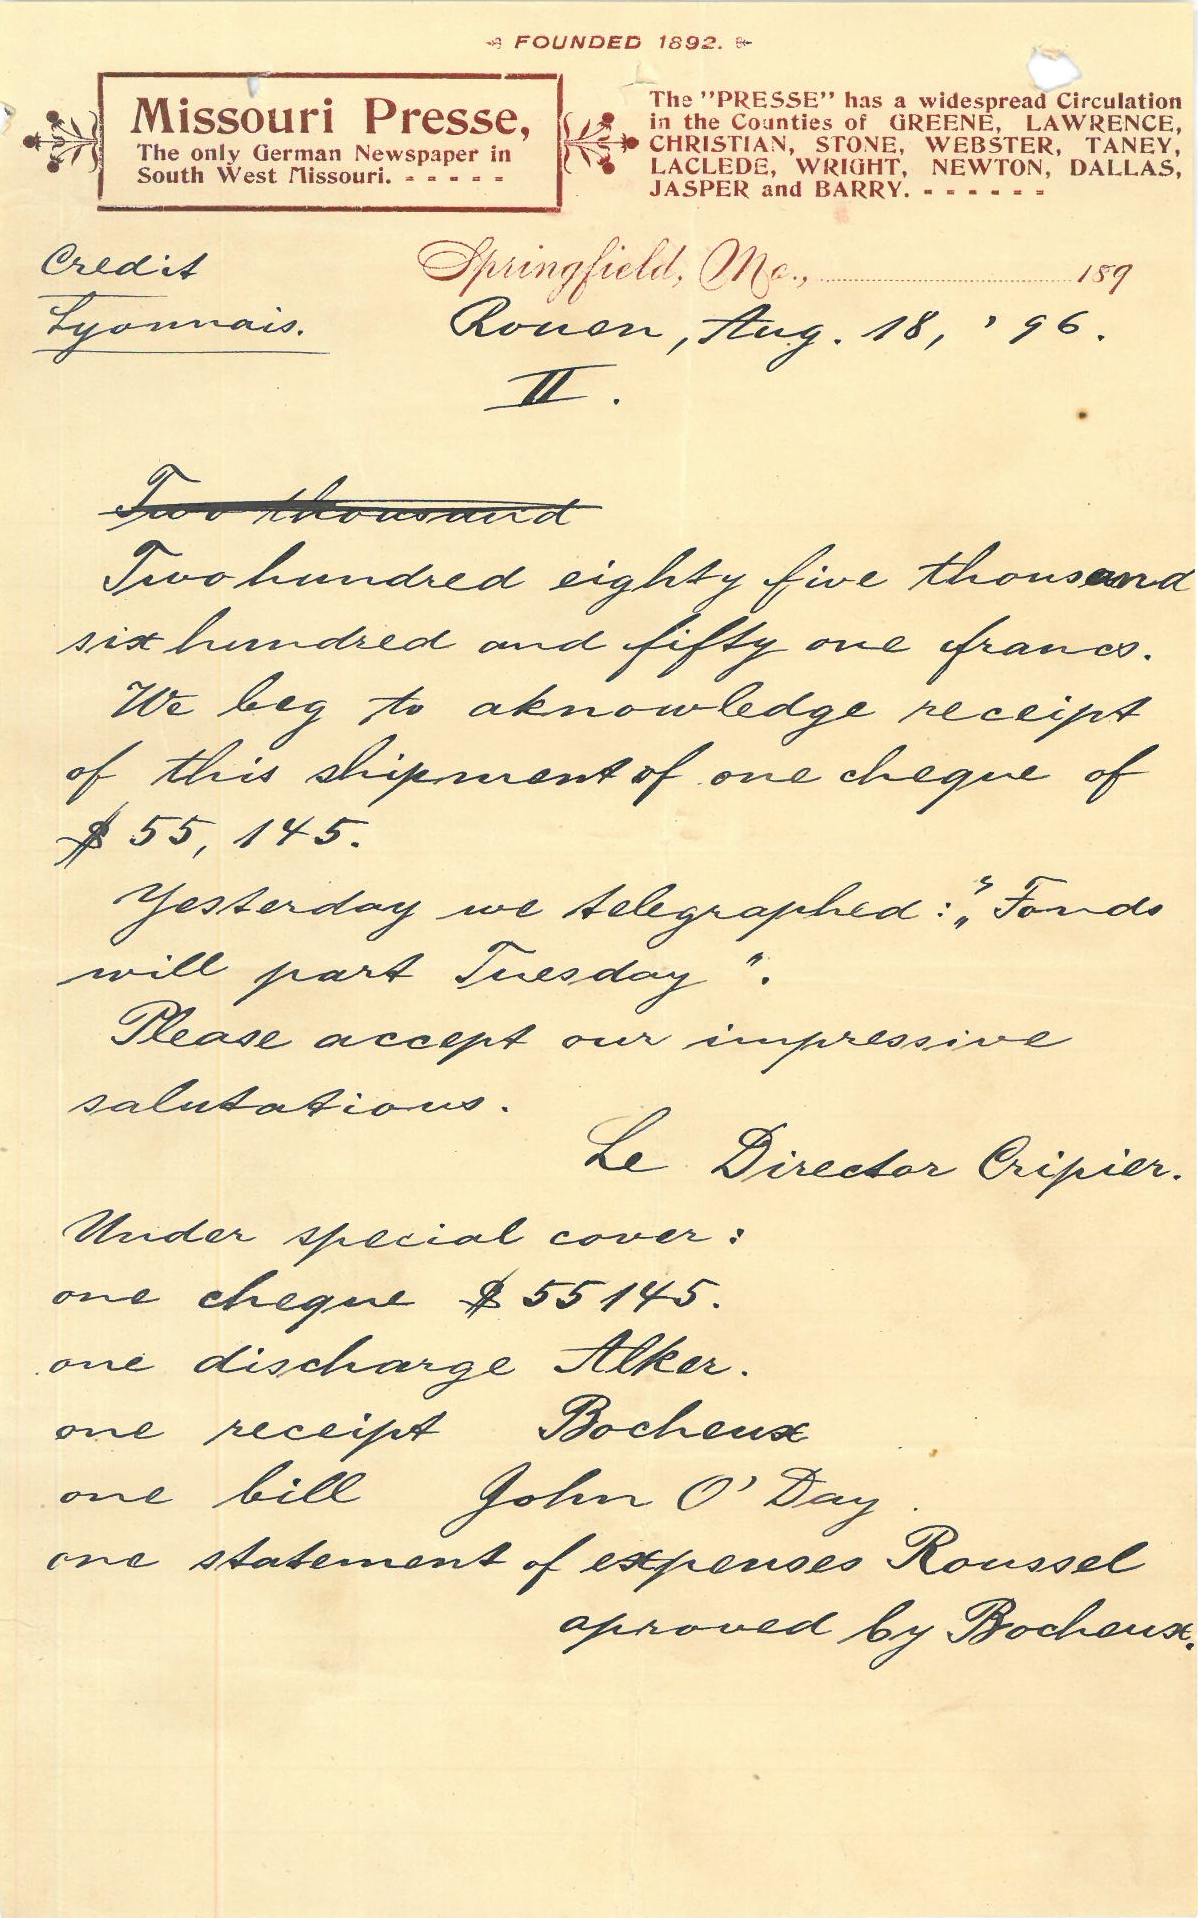 FOUNDED 1892.
Missouri Presse,
The only German Newspaper in
South West Missouri. - - - - -
The "PRESSE" has a widespread Circulation
in the Counties of GREENE, LAWRENCE,
CHRISTIAN, STONE, WEBSTER, TANEY,
LACLEDE, WRIGHT, NEWTON, DALLAS,
JASPER and BARRY. - - - - - -
Credit
Lyonnais.
Springfield, Mo., 189
Rouen, Aug. 18, '96.
II.
Two thousand
Two hundred eighty five thousand
six hundred and fifty one francs.
We beg to aknowledge receipt
of this shipment of one cheque of
$ 55,145.
Yesterday we telegraphed: „Fonds
will part Tuesday".
Please accept our impressive
salutations.
Le Director Cripier.
Under special cover:
one cheque $ 55145.
one discharge Alker.
one receipt Bocheux
one bill John O'Day.
one statement of expenses Roussel
aproved by Bocheux.